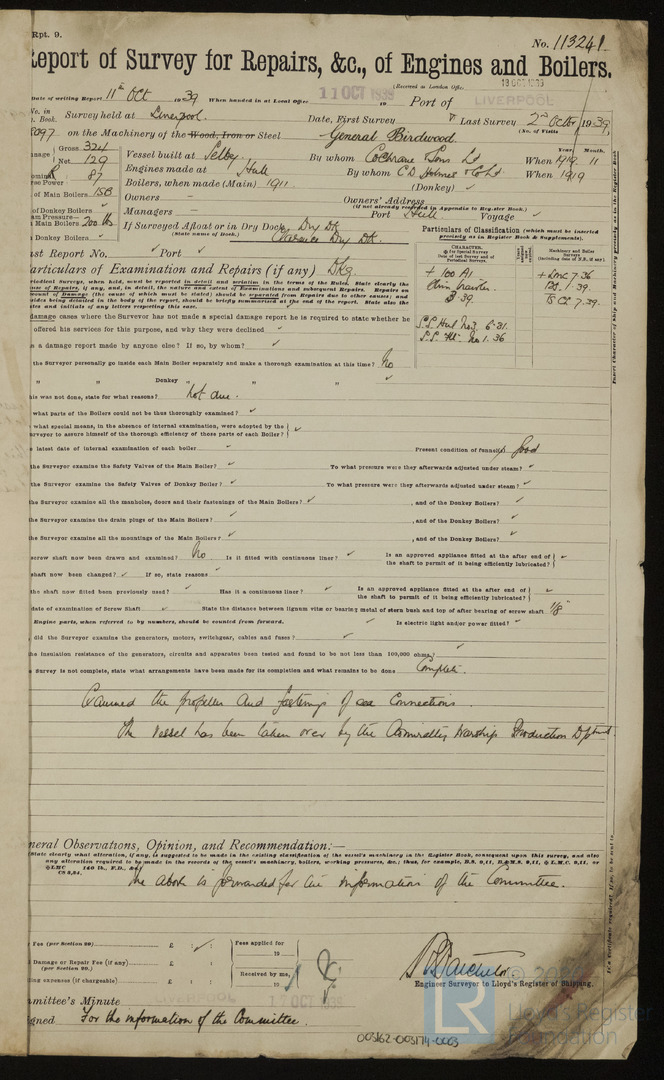 Rpt. 9.
No. 113241
Report of Survey for Repairs, &c., of Engines and Boilers.
(Received at London Office
13 OCT 1939
Date of writing Report 11th Oct 1939 When handed in at Local Office 11 OCT 1939 19 Port of LIVERPOOL
No. in Reg. Book. Survey held at Liverpool. Date, First Survey ✓ Last Survey 2nd Octbr 1939
(No. of Visits
on the Machinery of the Wood, Iron or Steel General Birdwood.
Gross 324
Net 129
Vessel built at Selby By whom Cochrane & Sons Ld When 1919 11
Year. Month.
Engines made at Hull By whom C.D. Holmes & Co Ld When 1919
87
Boilers, when made (Main) 1911 (Donkey) ✓
of Main Boilers 1SB
Owners — Owners' Address
(if not already recorded in Appendix to Register Book.)
of Donkey Boilers ✓
Managers — Port Hull Voyage ✓
Main Boilers 200 lbs
If Surveyed Afloat or in Dry Dock Dry Dk.
(State name of Dock.) Clarence Dry Dk.
Donkey Boilers ✓
Particulars of Classification (which must be inserted precisely as in Register Book & Supplements).
CHARACTER.
Machinery and Boiler Surveys
+ 100 A1
Stm Trawler
3.39
S.S. Hul No.3 6.31.
S.S. No 1.36
+ LMC 7.36
BS. 1.39.
TS CL 7.39.
Last Report No. ✓ Port ✓
Particulars of Examination and Repairs (if any) Dkg.
damage cases where the Surveyor has not made a special damage report he is required to state whether he
offered his services for this purpose, and why they were declined ✓
a damage report made by anyone else? If so, by whom? ✓
the Surveyor personally go inside each Main Boiler separately and make a thorough examination at this time? No
" " Donkey " " " ✓
this was not done, state for what reasons? Not due.
what parts of the Boilers could not be thoroughly examined? ✓
what special means, in the absence of internal examination, were adopted by the
Surveyor to assure himself of the thorough efficiency of those parts of each Boiler? ✓
latest date of internal examination of each boiler ✓ Present condition of funnel(s) Good
the Surveyor examine the Safety Valves of the Main Boiler? ✓ To what pressure were they afterwards adjusted under steam? ✓
the Surveyor examine the Safety Valves of Donkey Boiler? ✓ To what pressure were they afterwards adjusted under steam? ✓
the Surveyor examine all the manholes, doors and their fastenings of the Main Boilers? ✓ , and of the Donkey Boilers? ✓
the Surveyor examine the drain plugs of the Main Boilers? ✓ , and of the Donkey Boilers? ✓
the Surveyor examine all the mountings of the Main Boilers? ✓ , and of the Donkey Boilers? ✓
screw shaft now been drawn and examined? No Is it fitted with continuous liner? ✓ Is an approved appliance fitted at the after end of the shaft to permit of it being efficiently lubricated? ✓
shaft now been changed? ✓ If so, state reasons ✓
the shaft now fitted been previously used? ✓ Has it a continuous liner? ✓ Is an approved appliance fitted at the after end of the shaft to permit of it being efficiently lubricated? ✓
date of examination of Screw Shaft ✓ State the distance between lignum vitæ or bearing metal of stern bush and top of after bearing of screw shaft 1/8"
Engine parts, when referred to by numbers, should be counted from forward. ✓ Is electric light and/or power fitted? ✓
did the Surveyor examine the generators, motors, switchgear, cables and fuses? ✓
the insulation resistance of the generators, circuits and apparatus been tested and found to be not less than 100,000 ohms? ✓
Survey is not complete, state what arrangements have been made for its completion and what remains to be done Complete.
Examined the propeller and fastenings of sea connections.
The vessel has been taken over by the Admiralty Warship Production Dptment
General Observations, Opinion, and Recommendation:—
(State clearly what alteration, if any, is suggested to be made in the existing classification of the vessel's machinery in the Register Book, consequent upon this survey, and also
any alteration required to be made in the records of the vessel's machinery, boilers, working pressures, &c.; thus, for example, B.S. 9,11, B.&M.S. 9,11, & L.M.C. 9,11, or
& LMC 140 lb., F.D., &c.
CS 3,34.
The above is forwarded for the information of the Committee.
Fee (per Section 29) £ : ✓ :
Fees applied for
19
Damage or Repair Fee (if any) £ : :
(per Section 29.)
Received by me,
19
Travelling expenses (if chargeable) £ : :
Engineer Surveyor to Lloyd's Register of Shipping.
Committee's Minute LIVERPOOL 17 OCT 1939
Assigned For the information of the Committee.
003162-003174-0003
LR
Lloyd's Register
Foundation